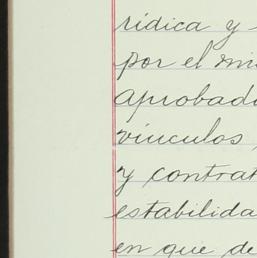 rídica y
por el mi
aprobad
vínculos,
y contrat
estabilida
en que de